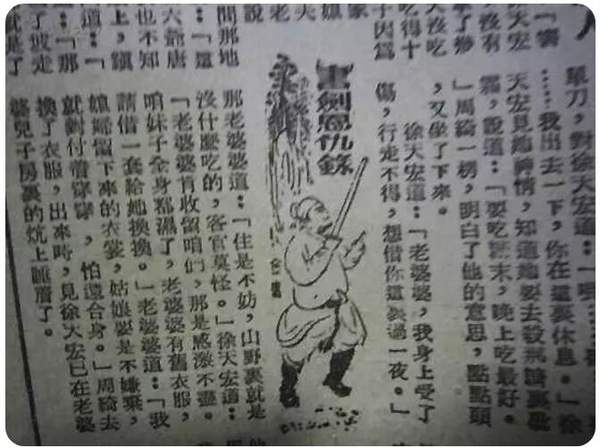 徐天宏
天沒吃
吃得十
子因爲
單刀，對徐天宏道：
……我出去一下，你在這裏休息。」徐
天宏見她神情，知道她要去殺那
霸，說道：「要吃 末，晚上吃最好。
」周綺一楞，明白了他的意思，點點頭
，又坐了下來。
徐天宏道：「老婆婆，我身上受了
傷，行走不得，想借你這裏過一夜。」
書劍恩仇錄
金庸
間那地
「還
六爺唐
也不知
上，鎮
道：「
「那
了坡走
就是了
那老婆婆道：「住是不妨，山野裏就是
沒什麼吃的，客官莫怪。」徐天宏道：
「老婆婆肯收留咱們，那是感激不盡。
咱妹子全身都濕了，老婆婆有舊衣服，
請借一套給她換換。」老婆婆道：「我
媳婦留下來的衣裳，姑娘要是不嫌棄，
就對付着穿穿，怕還合身。」周綺去
換了衣服，出來時，見徐天宏已在老婆
婆兒子房裏的炕上睡着了。